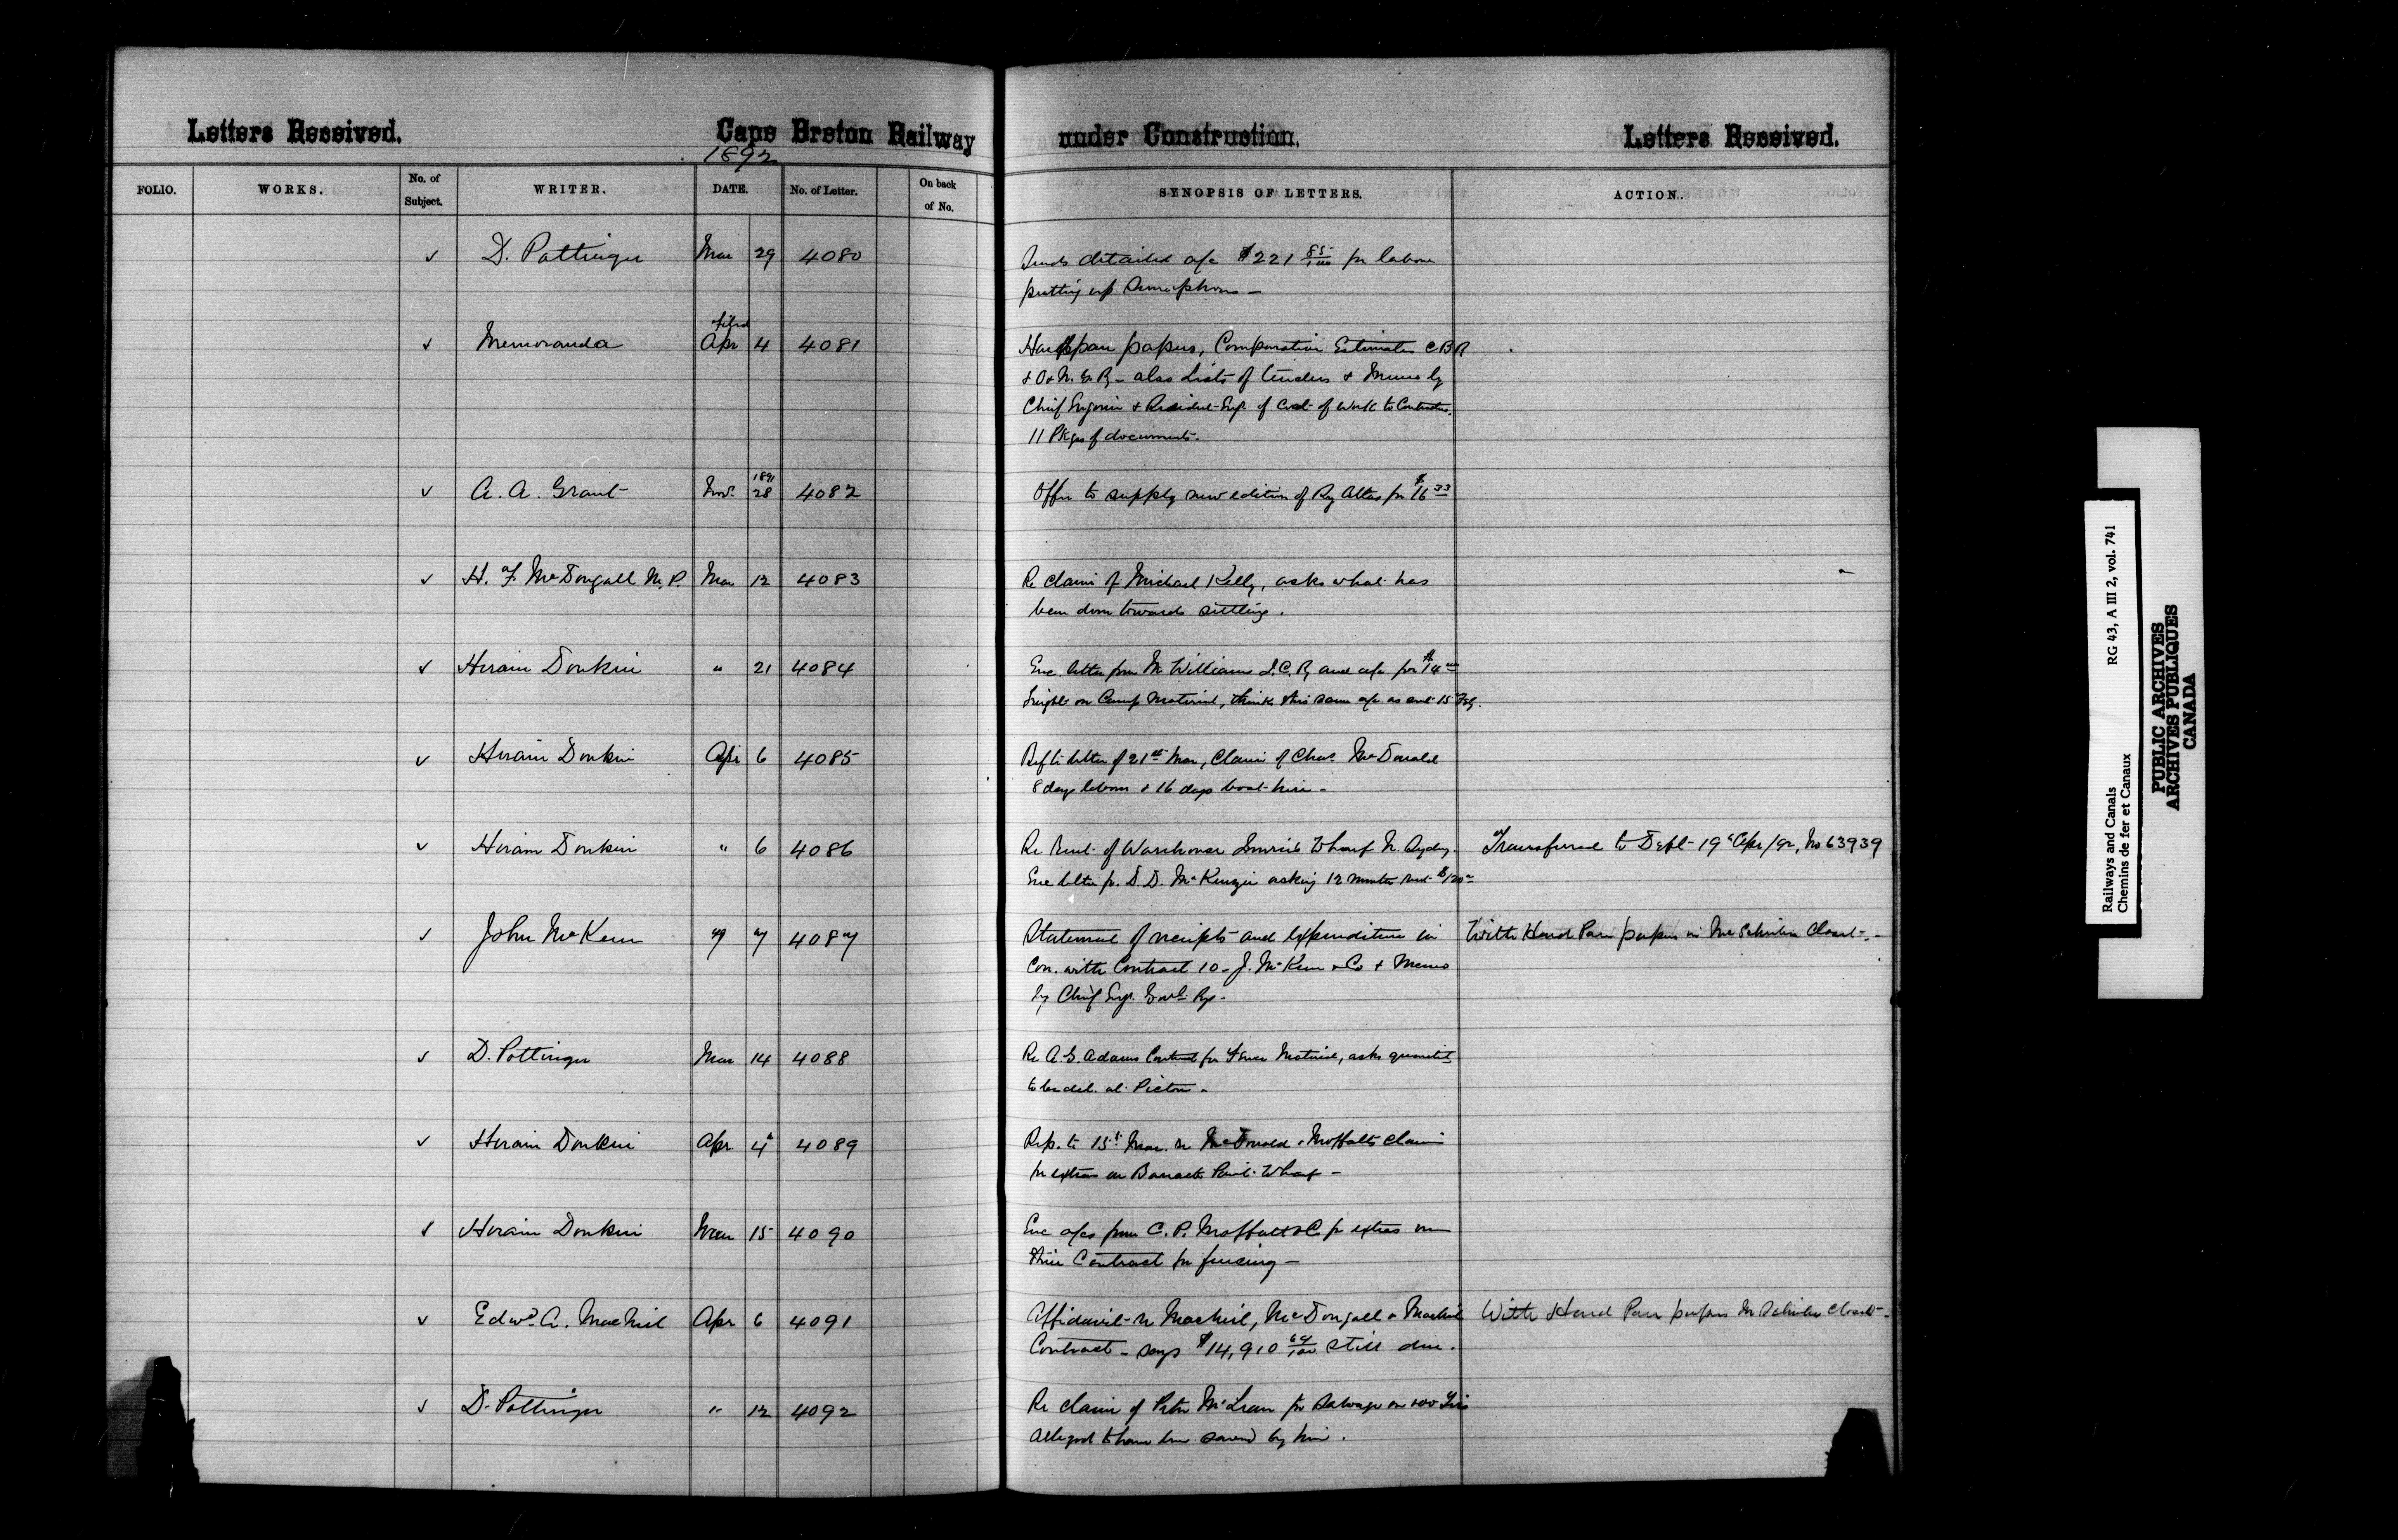 Letters Received. Cape Breton Railway under Construction. Letters Received.
1892
FOLIO. WORKS. No. of Subject. WRITER. DATE. No. of Letter. On back of No. SYNOPSIS OF LETTERS. ACTION.
✓ D. Pottinger Mar 29 4080 Sends detailed a/c $221 85/100 for labour
putting up Semaphores –
filed
✓ Memoranda Apr 4 4081 Hard pan papers, Comparative Estimates C B R
& O & N. G. Ry – also Lists of tenders & Memo by
Chief Engineer & Resident Engr. of Cost of Work to Contractors.
11 Pkges of documents.
✓ A. A. Grant Nov. 1891 28 4082 Offer to supply new edition of Ry Atlas for $16 33
✓ H. F. McDougall M, P. Mar 12 4083 Re claim of Michael Kelly, asks what has
been done towards settling.
✓ Hiram Donkin " 21 4084 Enc. letter from Mr Williams I. C. Ry and a/c for $14 00
freight on Camp Material, thinks this same a/c as sent 15 Feby.
✓ Hiram Donkin Apr 6 4085 Ref to letter of 21st Mar, Claim of Chas. McDonald
8 days labour & 16 days boat hire –
✓ Hiram Donkin " 6 4086 Re Rent of Warehouse Wharf N. Sydney. Transferred to Dept 19th Apr/92, No 63939
Enc letter fr. D. D. McKenzie asking 12 months rent $120 00
✓ John McKeen " 7 4087 Statement of receipts and expenditure in With Hard Pan papers in Mr Schreiber Closet –
Con. with Contract 10 – J. McKeen & Co & Memo
by Chief Engr. Govt. Rys –
✓ D. Pottinger Mar 14 4088 Re A. G. Adams Contract for Fence Material, asks quantity
to be del. at Pictou –
✓ Hiram Donkin Apr 4 4089 Rep. to 15th Mar. re McDonald & Moffatts claim
for extras on Barrack Point Wharf –
✓ Hiram Donkin Mar 15 4090 Enc a/cs from C. P. Moffatt & Co for extras on
their Contract for fencing –
✓ Edwd. A. MacNeil Apr 6 4091 Affidavit re MacNeil, McDougall & MacNeil With Hard Pan papers Mr Schreiber Closet –
Contract – says $14,910 64/100 still due.
✓ D. Pottinger " 12 4092 Re claim of Peter McLean for Salvage on 100 Ties
alleged to have been saved by him.
Railways and Canals RG 43, A III 2, vol. 741
Chemins de fer et Canaux
PUBLIC ARCHIVES
ARCHIVES PUBLIQUES
CANADA